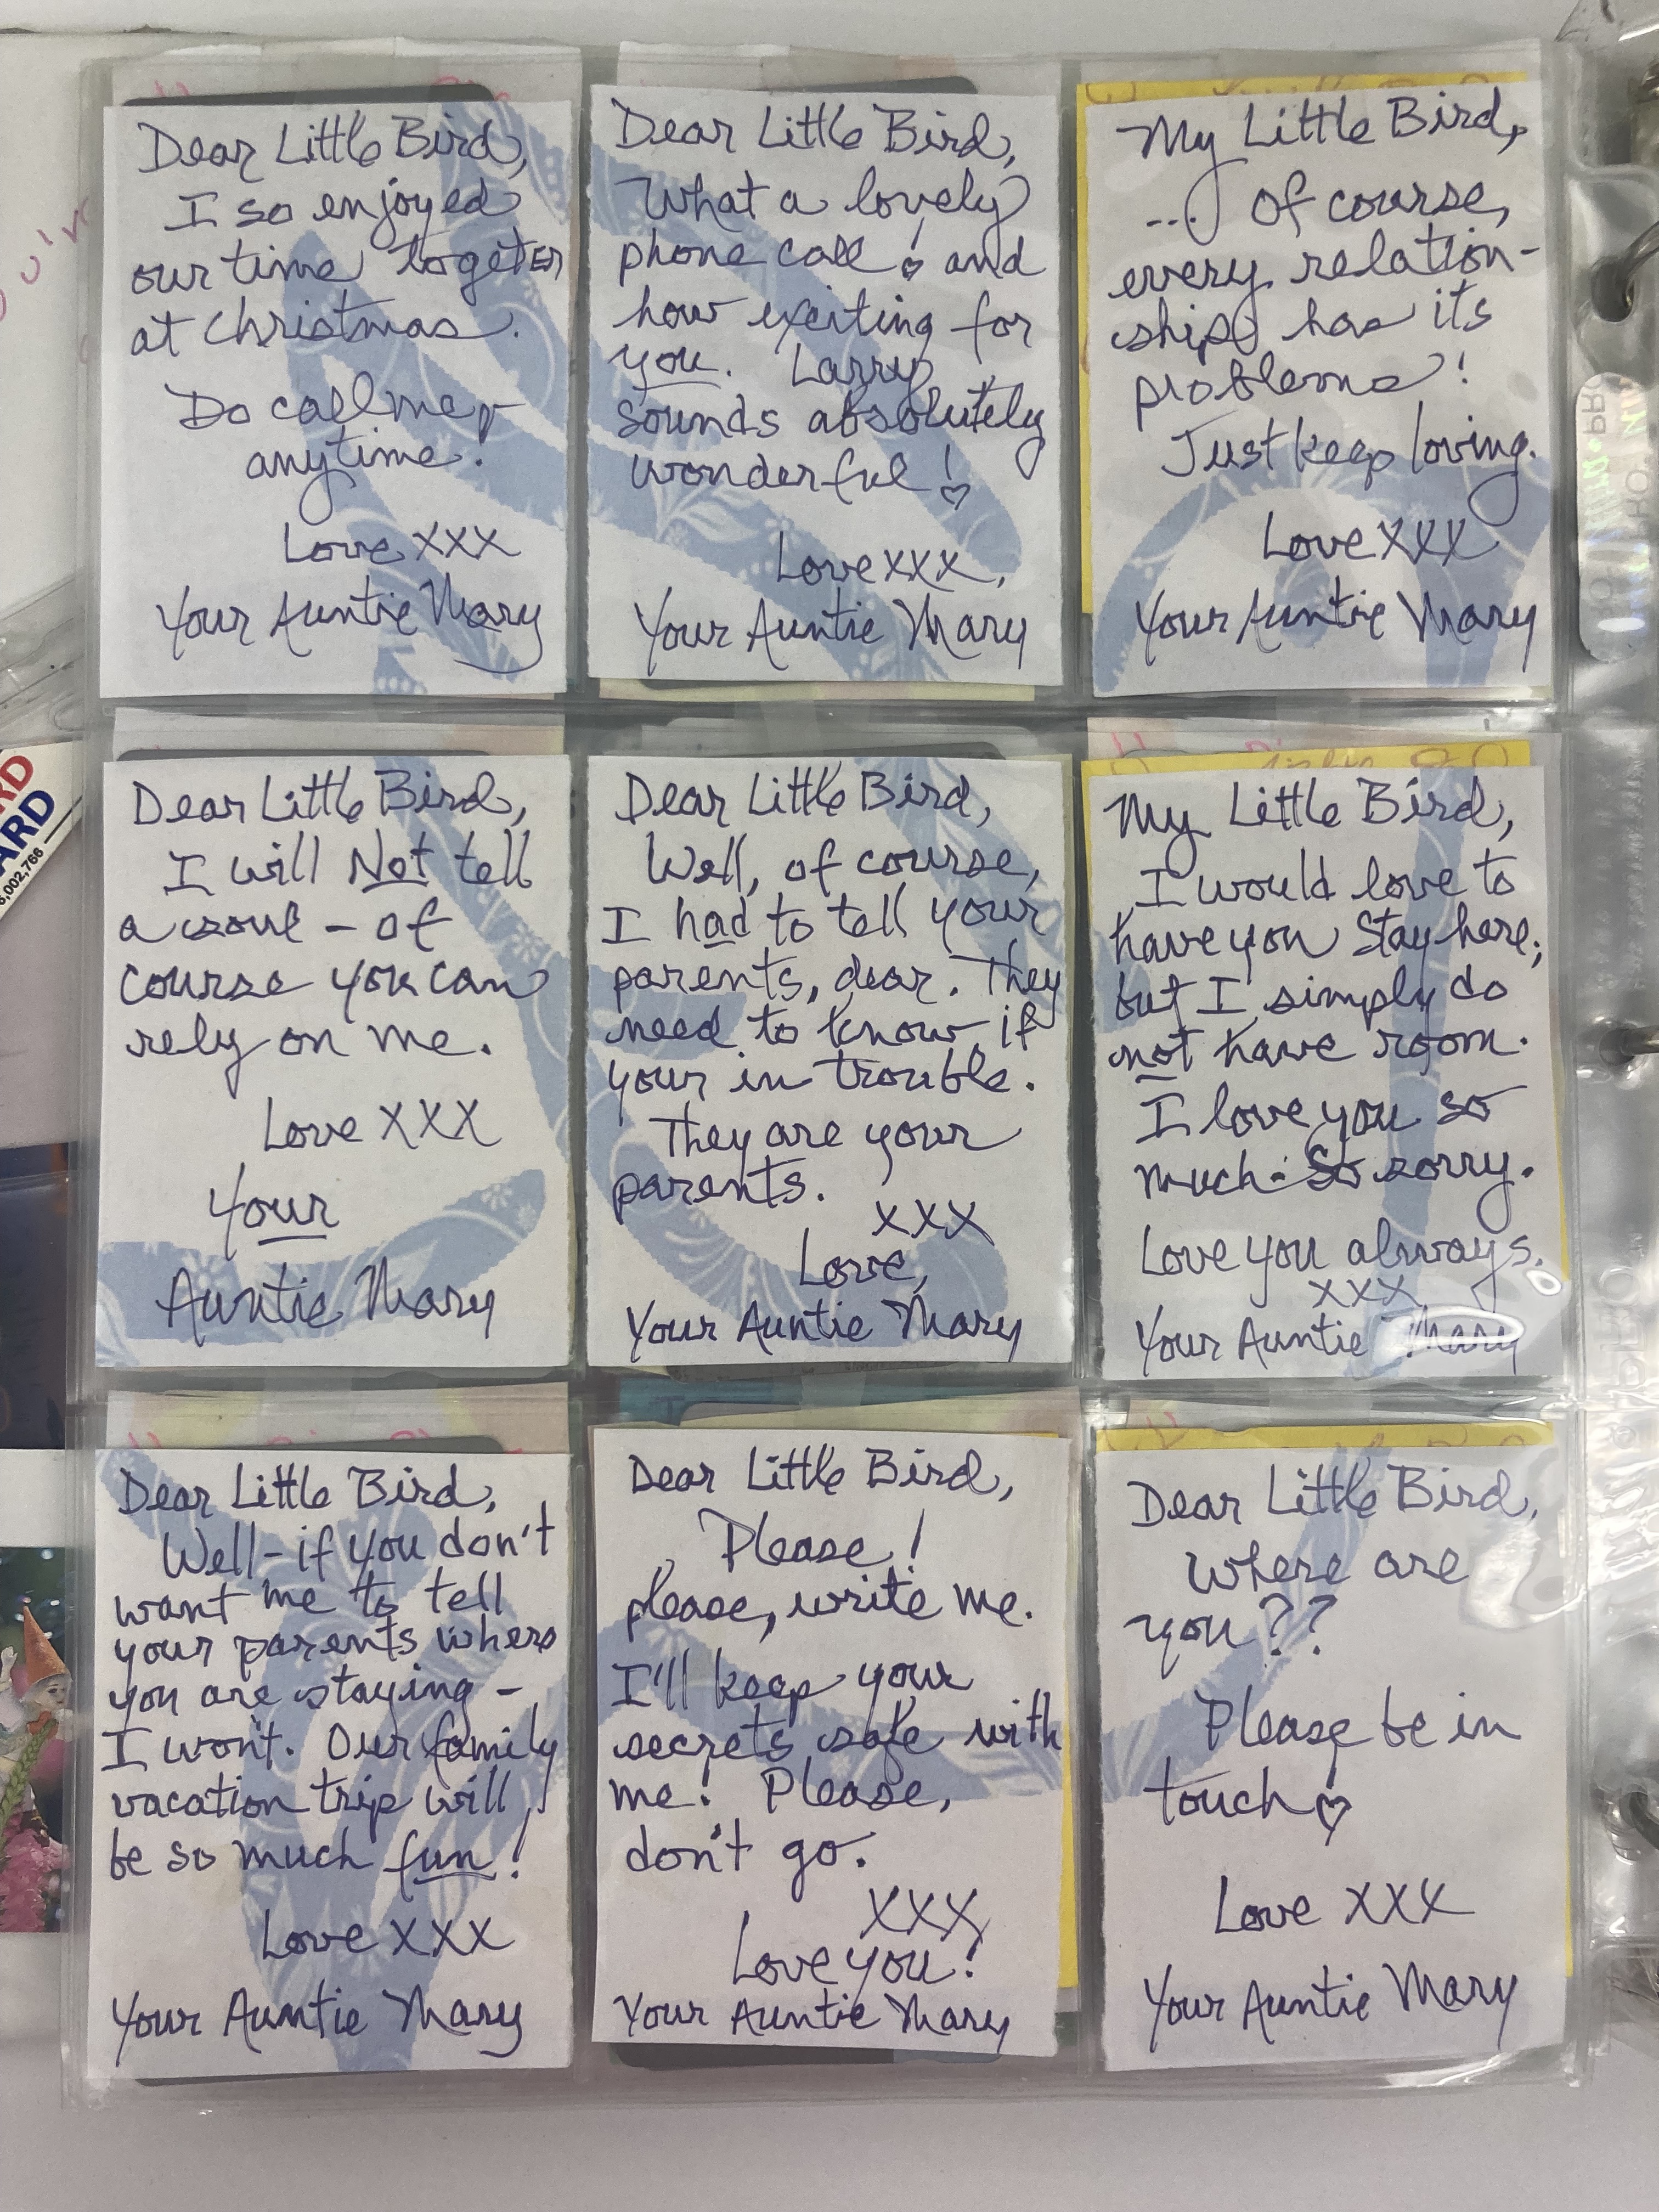 Dear Little Bird,
I so enjoyed
our time togeter
at Christmas.
Do call me,
anytime!
Love XXX
Your Auntie Mary
Dear Little Bird,
What a lovely
phone call! and
how exciting for
you. Larry
sounds absolutely
wonderful! ♡
Love XXX,
Your Auntie Mary
My Little Bird,
... Of course,
every relation-
ship has its
problems!
Just keep loving.
Love XXX
Your Auntie Mary
Dear Little Bird,
I will Not tell
a soul - of
course you can
rely on me.
Love XXX
Your
Auntie Mary
Dear Little Bird,
Well, of course,
I had to tell your
parents, dear. They
need to know if
your in trouble.
They are your
parents.
XXX
Love,
Your Auntie Mary
My Little Bird,
I would love to
have you stay here;
but I simply do
not have room.
I love you so
much. So sorry.
Love you always.
XXX
Your Auntie Mary
Dear Little Bird,
Well - if you don't
want me to tell
your parents where
you are staying -
I won't. Our family
vacation trip will
be so much fun!
Love XXX
Your Auntie Mary
Dear Little Bird,
Please!
please, write me.
I'll keep your
secrets safe with
me! Please,
don't go.
XXX
Love you!
Your Auntie Mary
Dear Little Bird,
Where are
you??
Please be in
touch ♡
Love XXX
Your Auntie Mary
RD
ARD
6,002,766